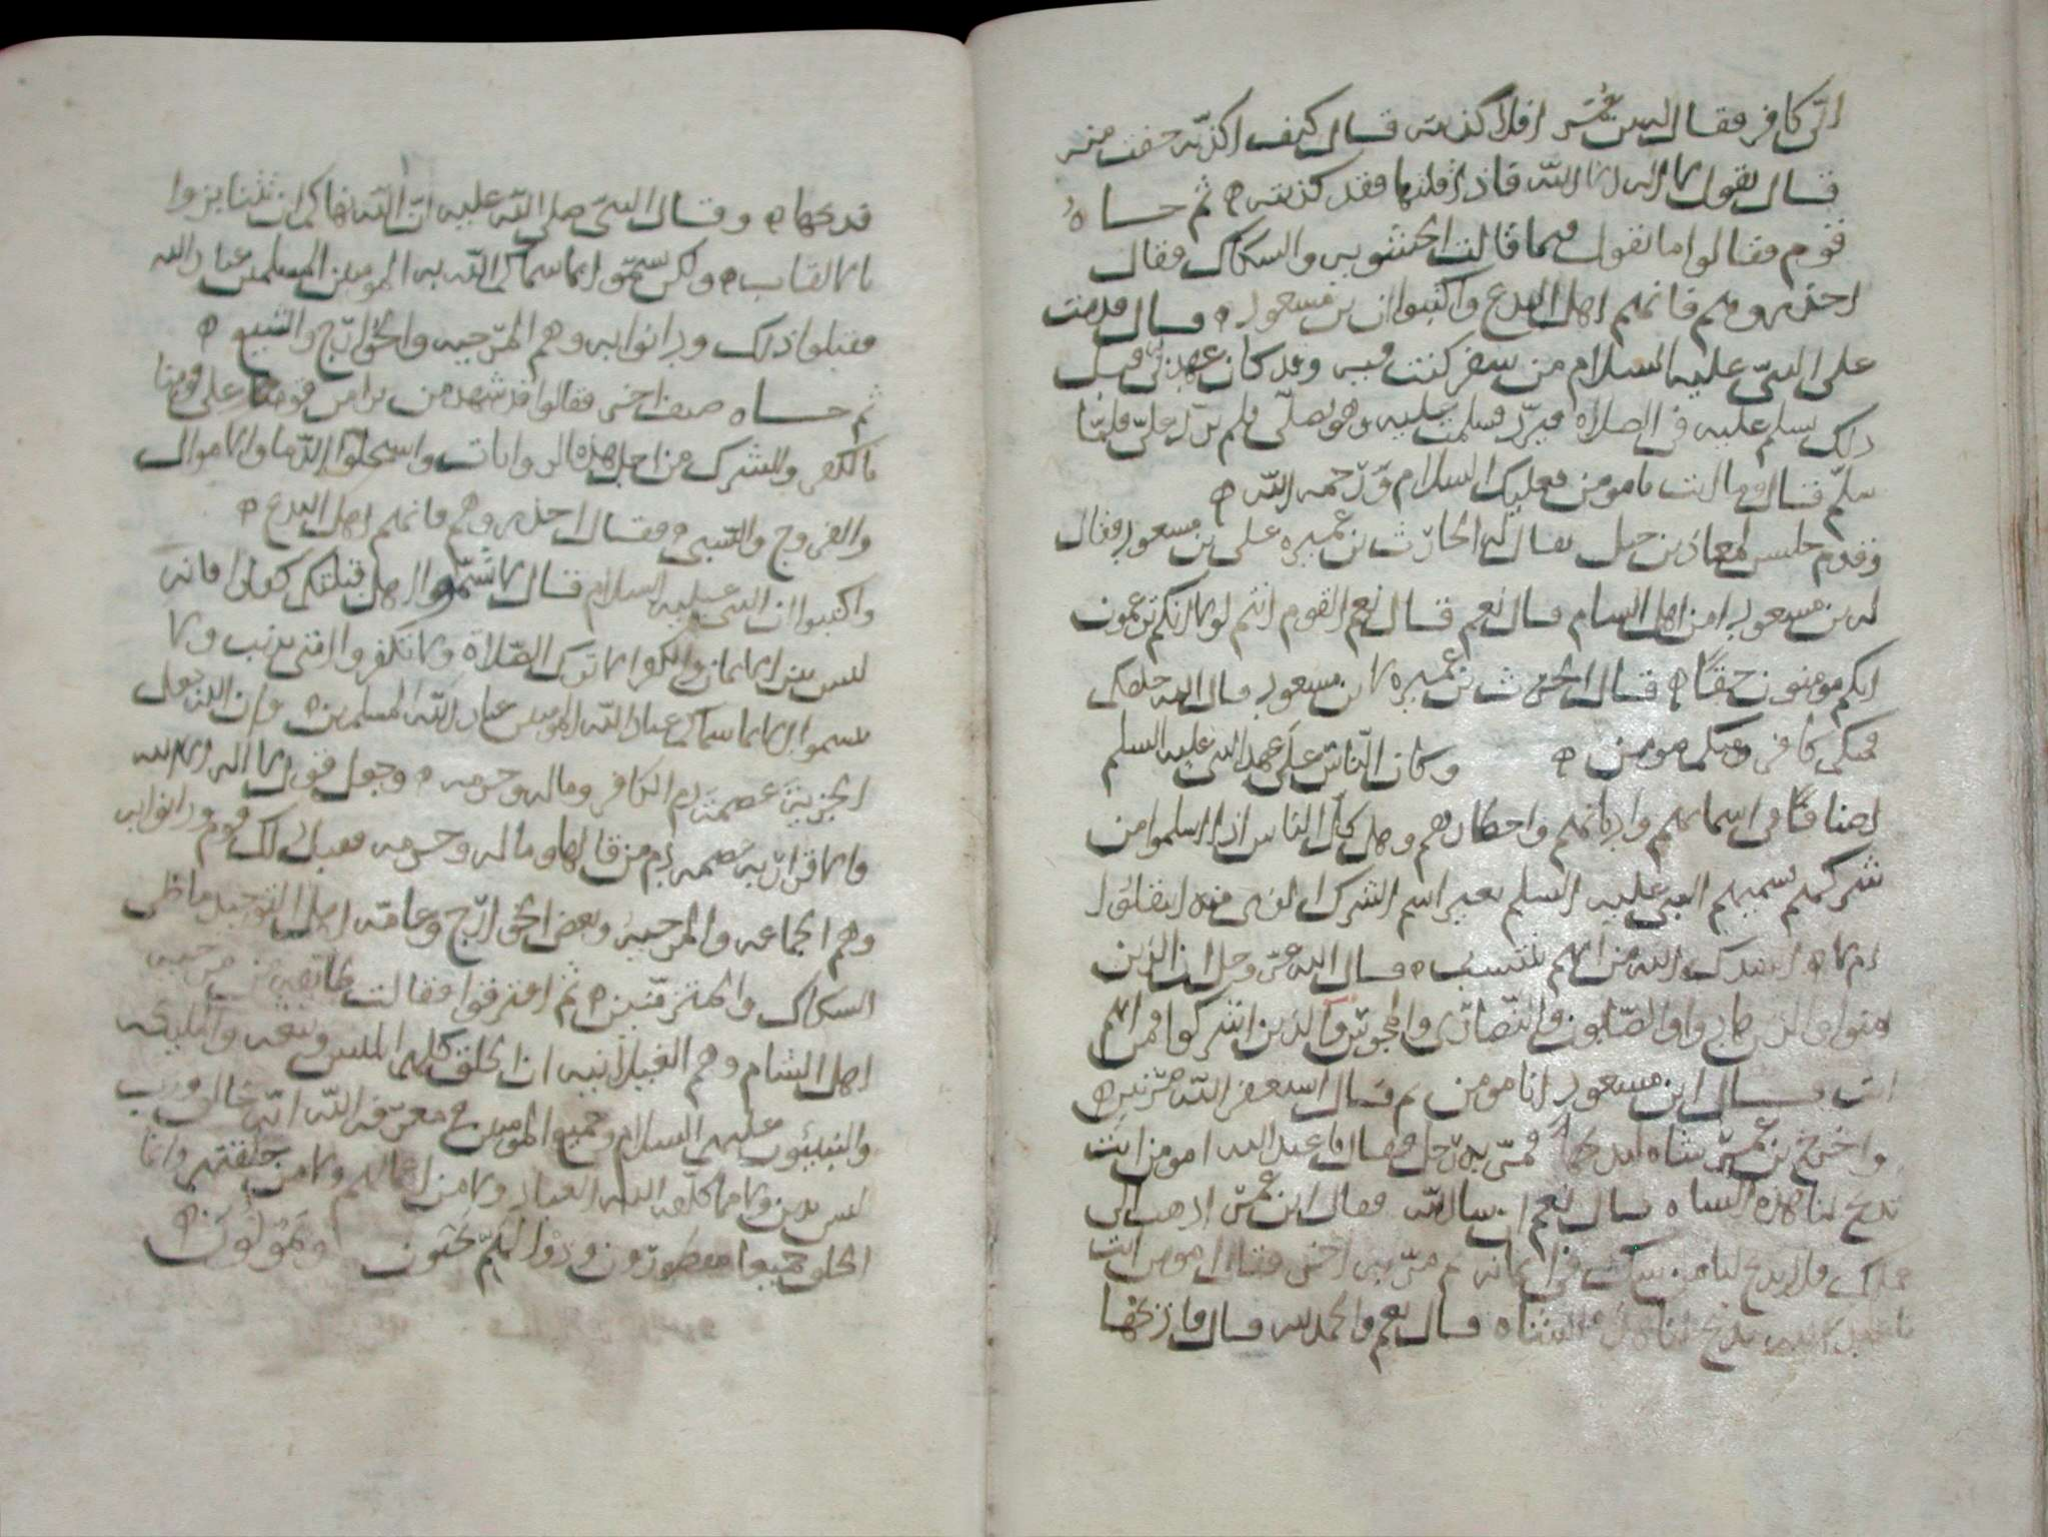 انى كافر فقال ابن عمر افلا كذبته قال كيف اكذبه خفت منه
قال تقول لا اله الا الله فاذا قلتها فقد كذبته ثم جاه
قوم فقالوا ما تقول فيما قالت الحشويه والسكاك فقال
احذروهم فانهم اهل البدع واكتبوا ان بن مسعود قال قدمت
على النبى عليه السلام من سفر كنت فيه وقد كان عهدى قبل
ذلك يسلم عليه فى الصلاه فيرد فسلمت عليه وهو يصلى فلم يرد على فلما
سلم قال وما انت بامومن فعليك السلام ورحمه الله
وقدم جليس لمعاذ بن جبل يقال له الحارث بن عميره على بن مسعود فقال
له بن مسعود امن اهل الشام قال نعم قال نعم القوم انتم لولا انكم تزعمون
انكم مومنون حقا قال الحرث بن عميره لابن مسعود قال الله خلقكم
فمنكم كافر ومنكم مومن وكان الناس على عهد النبى عليه السلم
اصنافا فى اسمائهم واديانهم واحكامهم وهل كل الناس اذا اسلموا من
شركهم يسميهم النبى عليه السلم بغير اسم الشرك الذى منه انتقلوا
ام لا ايشرك الله من ايهم ينتسب قال الله عز وجل ان الذين
امنوا والذين هادوا والصابون والنصارى والمجوس والذين اشركوا فمن ايهم
انت قال ابن مسعود انا مومن ثم قال استغفر الله مرتين
واخرج بن عمر شاه ليذبحها فمر به رجل فقال يا عبد الله امومن انت
تذبح لنا هذه الشاه قال نعم ان شا الله فقال ابن عمر اذهب الى
عملك فلا يذبح لنا من يشك فى ايمانه ثم مر به اخر فقال امومن انت
يا عبد الله تذبح لنا هذه الشاه قال نعم والحمد لله قال فاذبحها
فذبحها وقال النبى صلى الله عليه ان الله نهاكم ان تنابزوا
بالالقاب ولكن سموا بما سماكم الله به المومنين المسلمين عباد الله
فقبلوا ذلك ودانوا به وهم المرجيه والخوارج والشيع
ثم جاه صنف اخر فقالوا قد شهد من نرا من قومنا على قومنا
بالكفر والشرك من اجل هذه الروايات واستحلوا الدما والاموال
والفروج والسبى فقال احذروهم فانهم اهل البدع
واكتبوا ان النبى عليه السلام قال لا تسموا اهل قبلتكم كفارا فانه
ليس بين الايمان والكفر الا ترك الصلاة ولا تكفروا افتى بذنب ولا
تسموا الا بما سماكم عباد الله المومنين عباد الله المسلمين وان الله جعل
الجزيه عصمة دم الكافر وماله وحرمه وجعل قول لا اله الا الله
والاقرار به عصمه دم من قالها وماله وحرمه فقبل ذلك قوم ودانوا به
وهم الجماعه والمرجيه وبعض الخوارج وعامه اهل التوحيد ما خلى
السكاك والحشرقيين ثم افترقوا فقالت طايفه من مرجيه
اهل الشام وهم الغيلانيه ان الخلق كلهم ابليس وتبعه والمليكه
والنبيئون عليهم السلام وجميع المومنين معرفه الله انه خالق ورب
ليس بدين ولا مما كلف الله العباد ولا من افعالهم ولا من خلقتهم وانما
الخلق جميعا مفطورون ودوا لكم تحبون